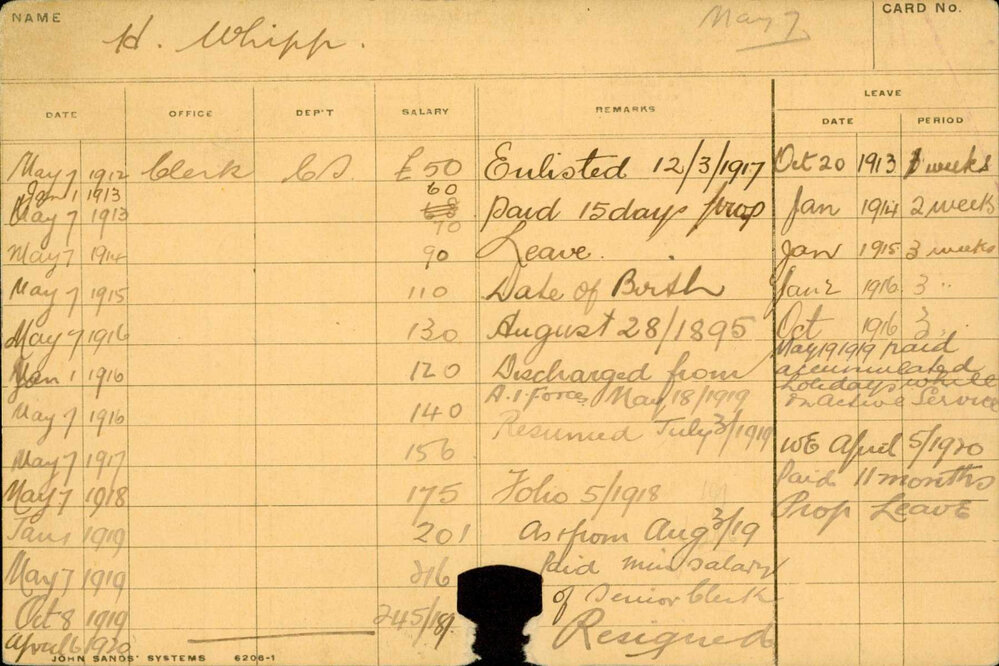 NAME H. Whipp. May 7 CARD No.
DATE OFFICE DEP'T SALARY REMARKS LEAVE
DATE PERIOD
May 7 1912 Clerk C.S. £50 Enlisted 12/3/1917 Oct 20 1913 weeks
Jan 1 1913 60
May 7 1913 70 Paid 15 days prop Jan 1914 2 weeks
May 7 1914 90 Leave. Jan 1915 3 weeks
May 7 1915 110 Date of Birth Jan 2 1916 3 "
May 7 1916 130 August 28/1895 Oct 1916 3 "
Jan 1 1916 120 Discharged from May 19 1919 paid
accumulated
holidays while
on active Service
May 7 1916 140 A.I. Force May 18/1919
Resumed July 3/1919
May 7 1917 156 WE April 5/1920
May 7 1918 175 Folio 5/1918 Paid 11 months
Prop Leave
Jan 1 1919 201 As from Aug 3/19
May 7 1919 216 Paid min salary
of Senior Clerk
Oct 8 1919 245/18/ Resigned
April 6 1920
JOHN SANDS' SYSTEMS 6206-1